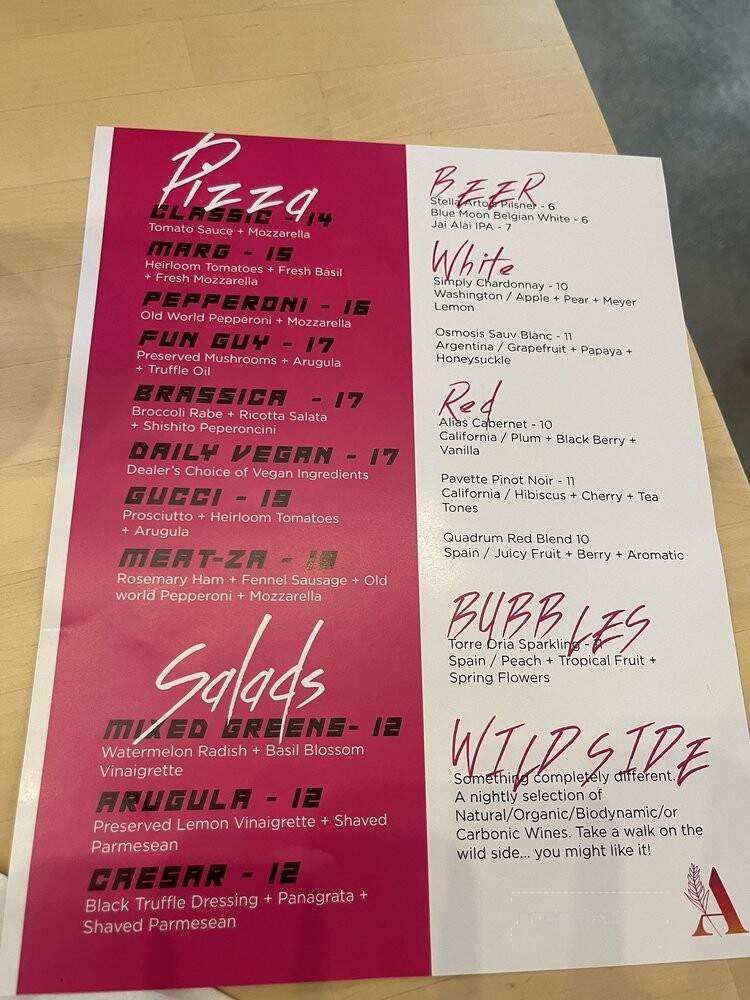 Pizza
CLASSIC - 14
Tomato Sauce + Mozzarella
MARG - 15
Heirloom Tomatoes + Fresh Basil
+ Fresh Mozzarella
PEPPERONI - 16
Old World Pepperoni + Mozzarella
FUN GUY - 17
Preserved Mushrooms + Arugula
+ Truffle Oil
BRASSICA - 17
Broccoli Rabe + Ricotta Salata
+ Shishito Peperoncini
DAILY VEGAN - 17
Dealer's Choice of Vegan Ingredients
GUCCI - 19
Prosciutto + Heirloom Tomatoes
+ Arugula
MEAT-ZA -
Rosemary Ham + Fennel Sausage + Old
world Pepperoni + Mozzarella
Salads
MIXED GREENS- 12
Watermelon Radish + Basil Blossom
Vinaigrette
ARUGULA - 12
Preserved Lemon Vinaigrette + Shaved
Parmesean
CAESAR - 12
Black Truffle Dressing + Panagrata +
Shaved Parmesean
BEER
Stella Artois Pilsner - 6
Blue Moon Belgian White - 6
Jai Alai IPA - 7
White
Simply Chardonnay - 10
Washington / Apple + Pear + Meyer
Lemon
Osmosis Sauv Blanc - 11
Argentina / Grapefruit + Papaya +
Honeysuckle
Red
Alias Cabernet - 10
California / Plum + Black Berry +
Vanilla
Pavette Pinot Noir - 11
California / Hibiscus + Cherry + Tea
Tones
Quadrum Red Blend 10
Spain / Juicy Fruit + Berry + Aromatic
BUBBLES
Torre Oria Sparkling - 11
Spain / Peach + Tropical Fruit +
Spring Flowers
WILD SIDE
Something completely different.
A nightly selection of
Natural/Organic/Biodynamic/or
Carbonic Wines. Take a walk on the
wild side... you might like it!
A